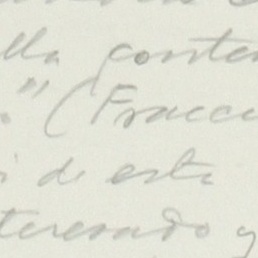 lla conten
." (Fracci
i de este
teresado y